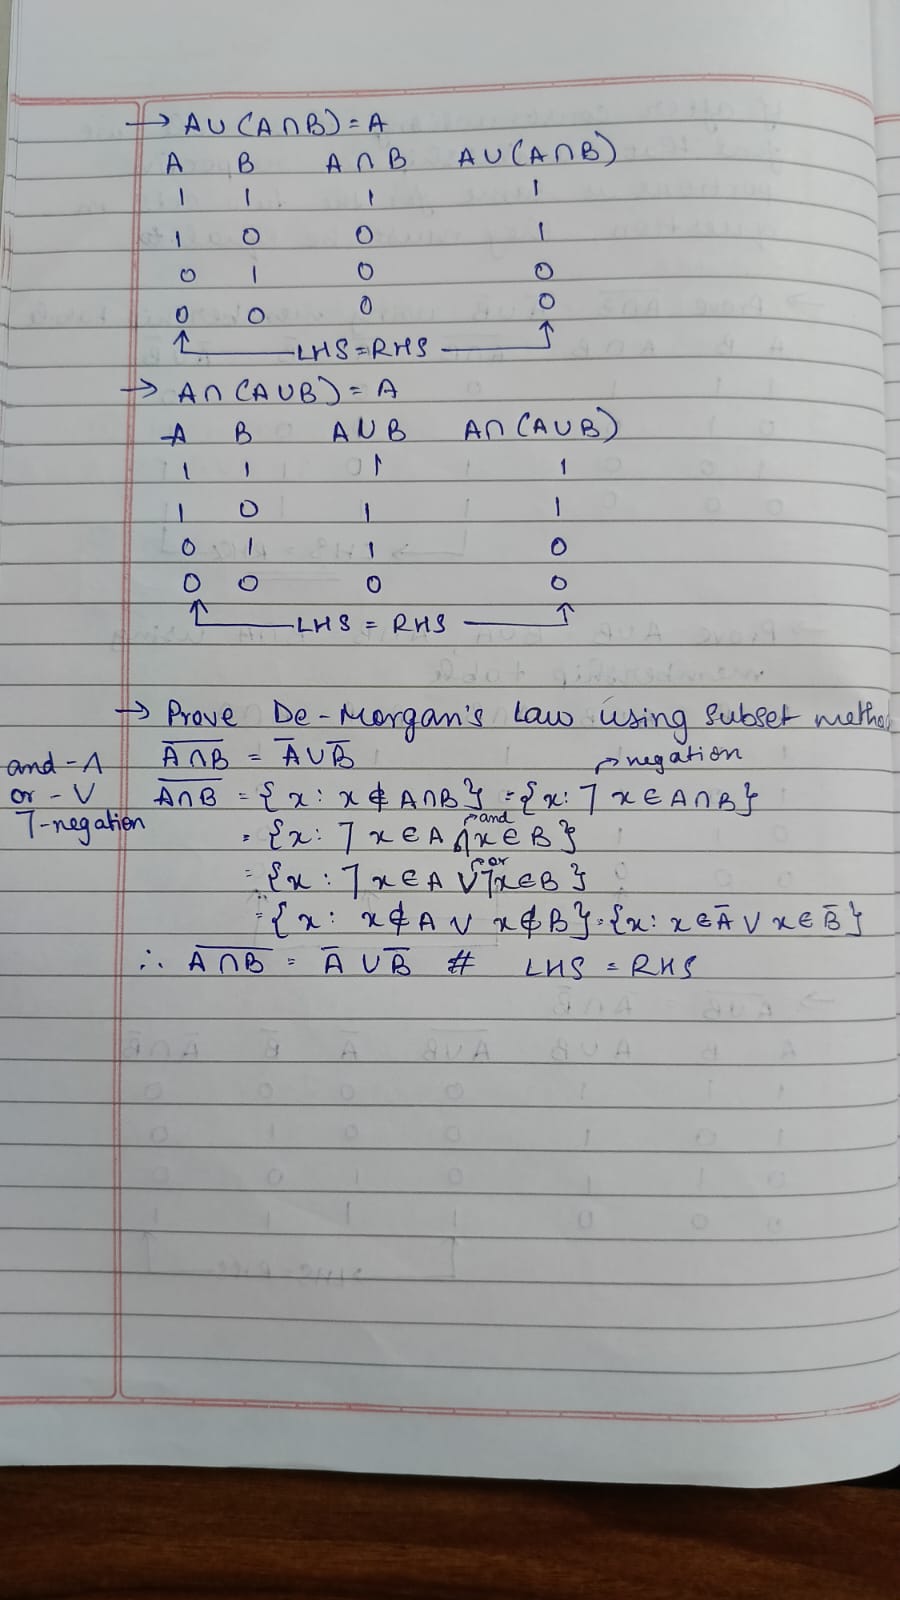 → A∪(A∩B) = A
A B A∩B A∪(A∩B)
1 1 1 1
1 0 0 1
0 1 0 0
0 0 0 0
LHS = RHS
→ A∩(A∪B) = A
A B A∪B A∩(A∪B)
1 1 1 1
1 0 1 1
0 1 1 0
0 0 0 0
LHS = RHS
→ Prove De-Morgan's Law using Subset method
A̅∩̅B̅ = A̅∪B̅
negation
and - ∧
or - ∨
7-negation
A̅∩̅B̅ = {x : x ∉ A∩B} = {x: 7 x ∈ A∩B}
and
= {x : 7 x ∈ A ∧ x ∈ B}
or
= {x : 7 x ∈ A ∨ 7x ∈ B}
= {x : x ∉ A ∨ x ∉ B} = {x: x ∈ A̅ ∨ x ∈ B̅}
∴ A̅∩̅B̅ = A̅ ∪ B̅ # LHS = RHS